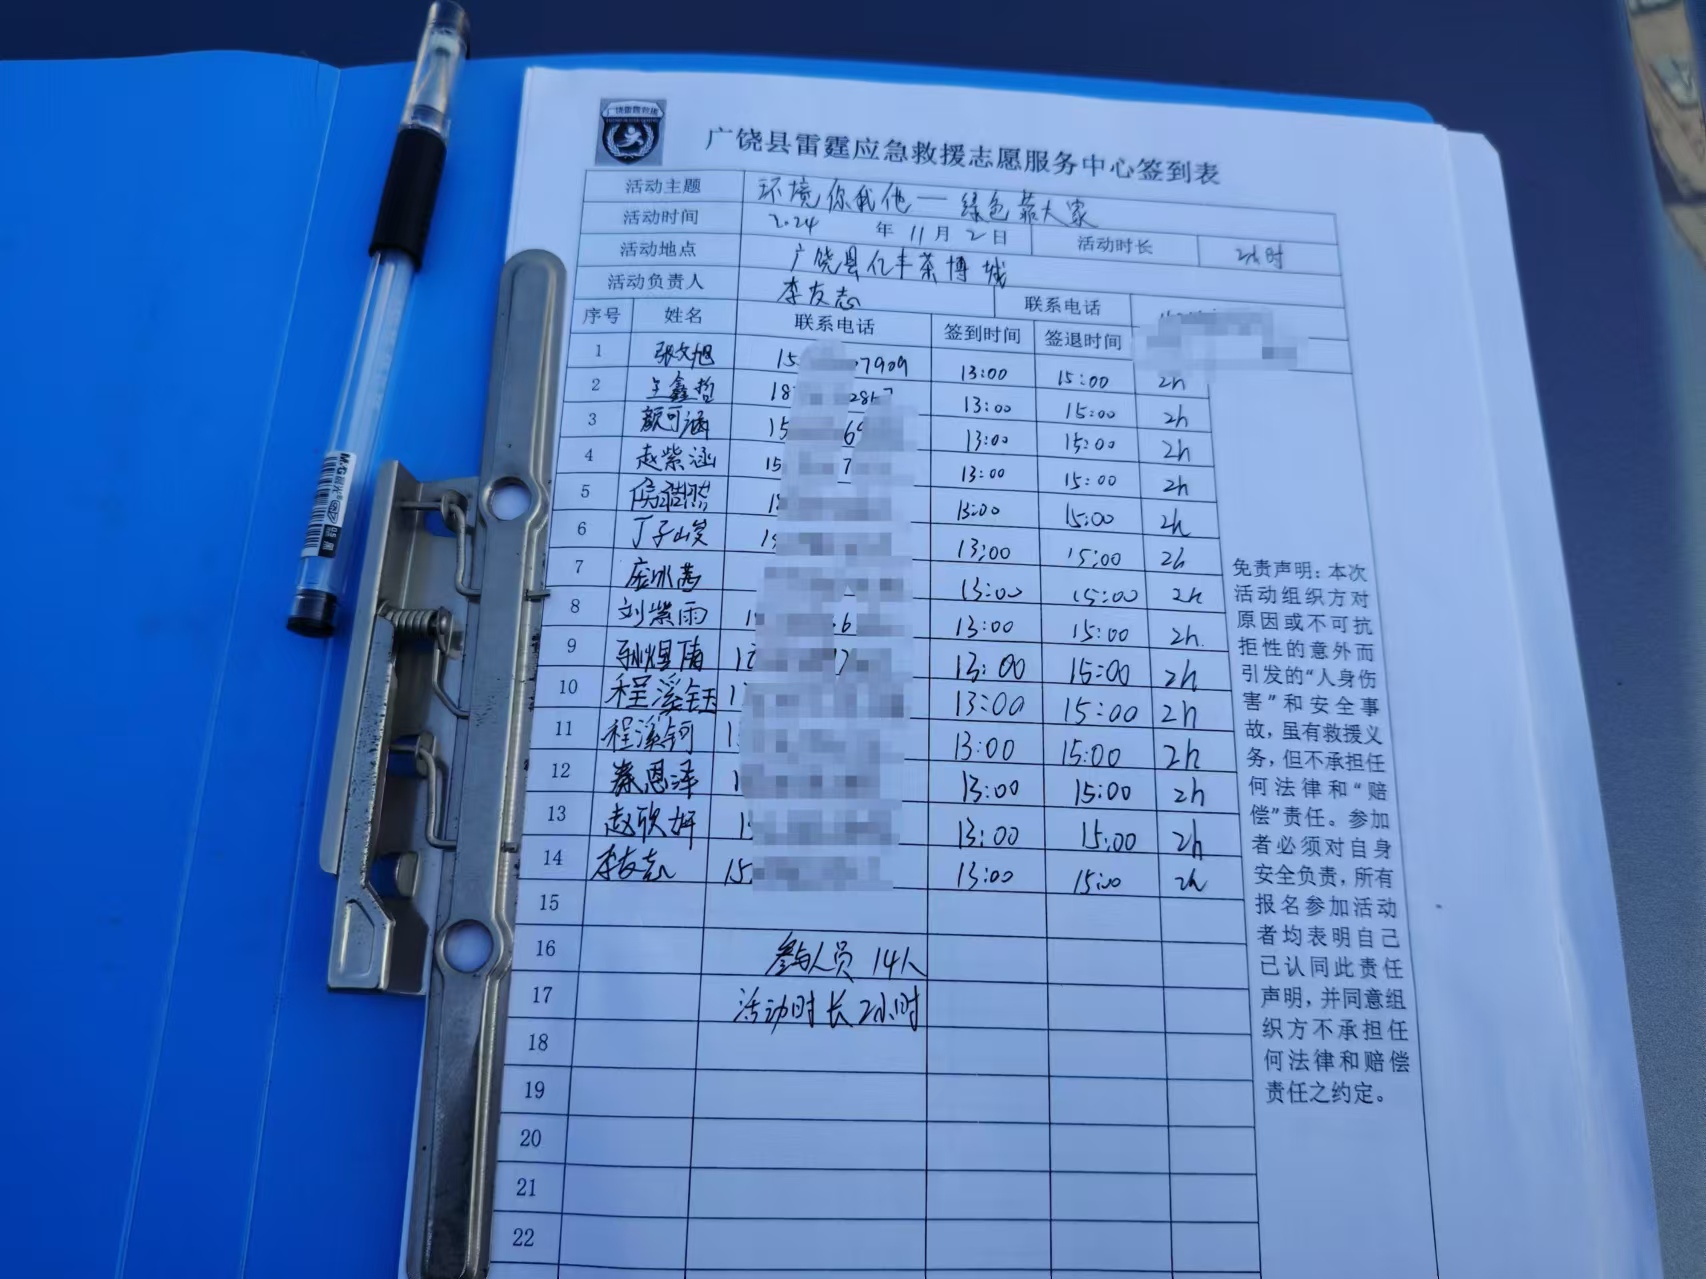 广饶县雷霆应急救援志愿服务中心签到表
活动主题 环境你我他一绿色靠大家
活动时间 2024 年 11 月 2 日 活动时长 2小时
活动地点 广饶县亿丰茶博城
活动负责人 李友志 联系电话
序号 姓名 联系电话 签到时间 签退时间
1 张文旭 15 7909 13:00 15:00 2h
2 王鑫哲 18 286 13:00 15:00 2h
3 颜可涵 15 6 13:00 15:00 2h
4 赵紫涵 15 7 13:00 15:00 2h
5 13:00 15:00 2h
6 丁子岚 13:00 15:00 2h
7 庞冰茜 13:00 15:00 2h
8 刘紫雨 6 13:00 15:00 2h.
9 13:00 15:00 2h
10 程溪钰 13:00 15:00 2h
11 程溪钶 13:00 15:00 2h
12 秦恩泽 13:00 15:00 2h
13 赵欣妍 13:00 15:00 2h
14 李友志 15 13:00 15:00 2h
15
16 参与人员 14人
17 活动时长 2小时
18
19
20
21
22
免责声明：本次
活动组织方对
原因或不可抗
拒性的意外而
引发的“人身伤
害”和安全事
故，虽有救援义
务，但不承担任
何法律和“赔
偿”责任。参加
者必须对自身
安全负责，所有
报名参加活动
者均表明自己
已认同此责任
声明，并同意组
织方不承担任
何法律和赔偿
责任之约定。
M&G 晨光